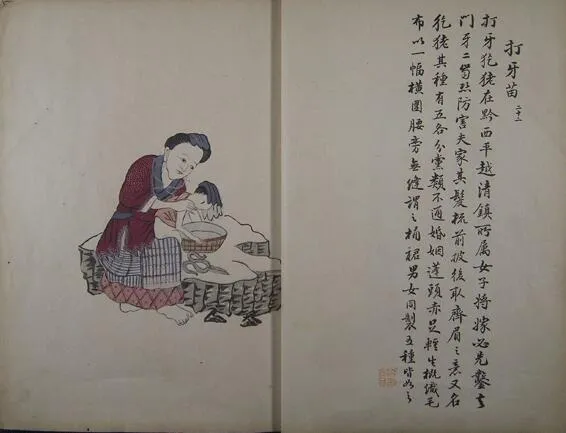 打牙苗 二十一
打牙犵狫在黔西平越清鎮所属女子将嫁必先鑿去
门牙二防害夫家其髮梳前披後取齊眉之意又名
犵狫其種有五各分黨類不通婚姻蓬頭赤足輕生概織毛
布以一幅横圍腰旁無縫謂之桶裙男女同製五種皆如之